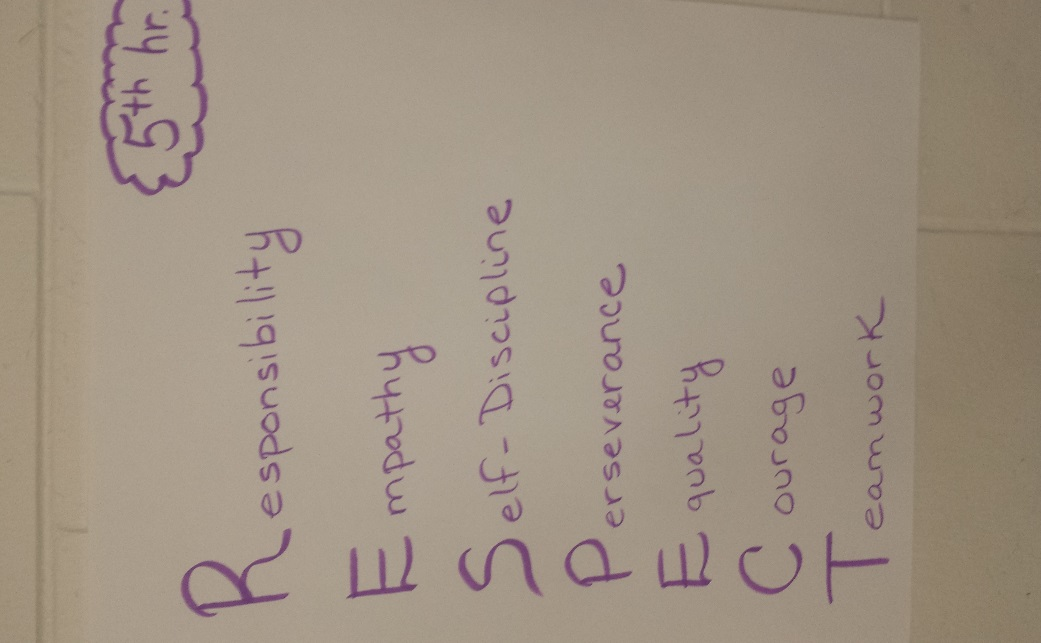 5th hr.
Responsibility
Empathy
Self-Discipline
Perseverance
Equality
Courage
Teamwork